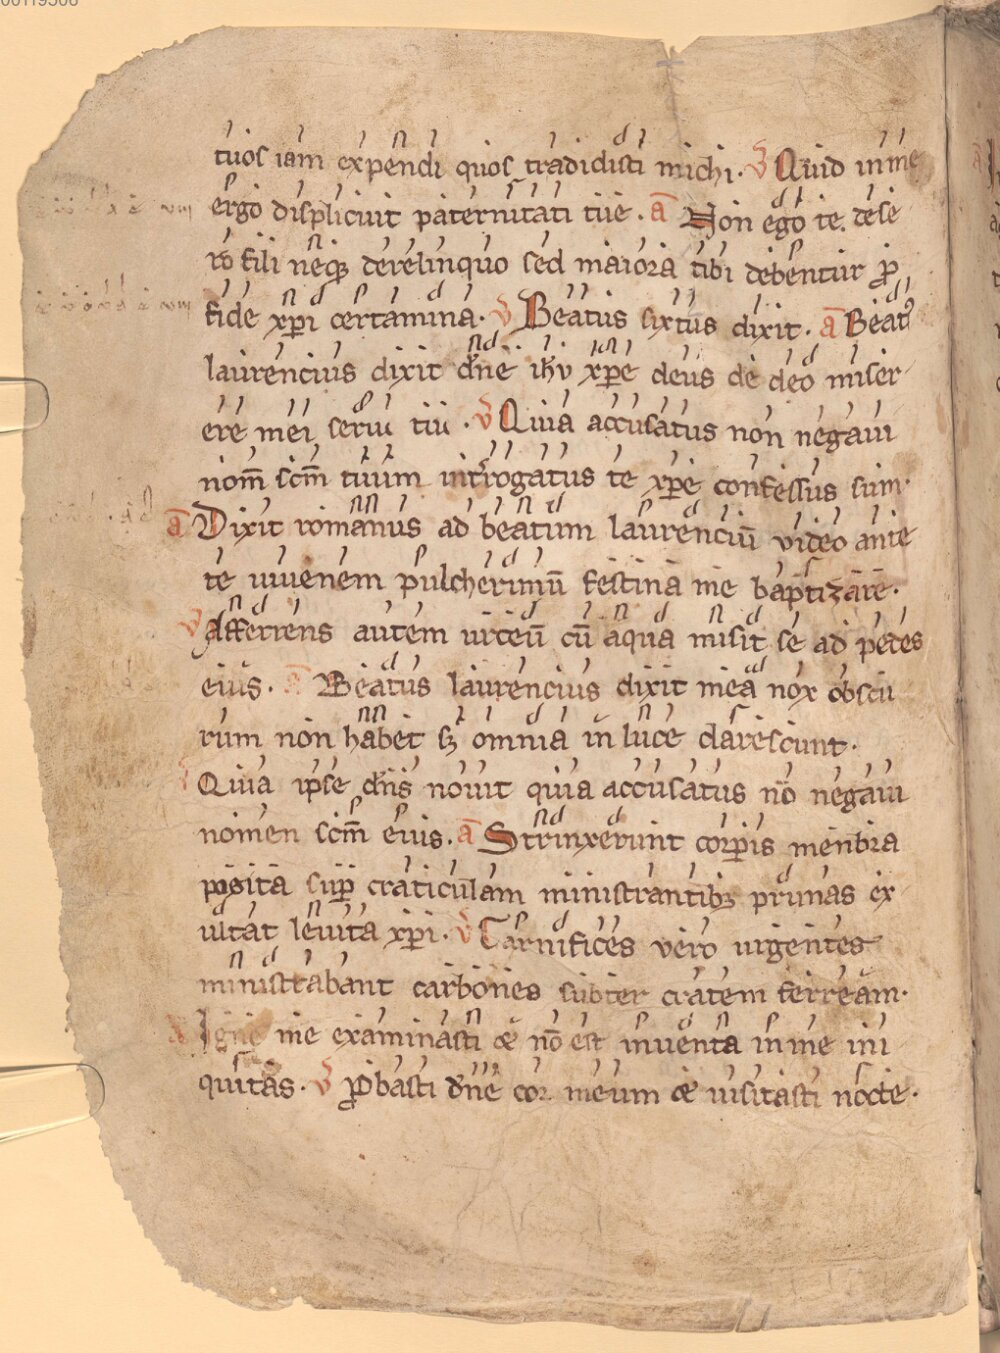 00119506
tuos iam expendi quos tradidisti michi. v̄ Quid in me
ergo displicuit paternitati tue. ā Non ego te dese
ro fili neq; derelinquo sed maiora tibi debentur ꝓ
fide xp̄i certamina. v̄ Beatus sixtus dixit. ā Beatꝰ
laurencius dixit dn̄e ih̄u xp̄e deus de deo miser
ere mei serui tui. v̄ Quia accusatus non negaui
nom̄ scm̄ tuum int̄rogatus te xp̄e confessus sum.
ā Dixit romanus ad beatum laurenciū video ante
te iuuenem pulcherimū festina me baptizare.
v̄ Afferens autem urceū cū aqua misit se ad pedes
eius. ā Beatus laurencius dixit mea nox obscu
rum non habet sꝫ omnia in luce clarescunt.
v̄ Quia ipse dn̄s nouit quia accusatus nō negaui
nomen scm̄ eius. ā Strinxerunt corꝑis menbra
posita suꝑ craticulam ministrantibꝫ prunas ex
ultat leuita xp̄i. v̄ Carnifices vero urgentes
ministrabant carbones subter cratem ferream.
ā Igne me examinasti & nō est inuenta in me ini
quitas. v̄ ꝓbasti dn̄e cor meum & uisitasti nocte.